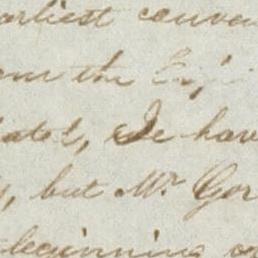 arliest conve
om the
hotel, We have
, but Mr Gor
beginning o